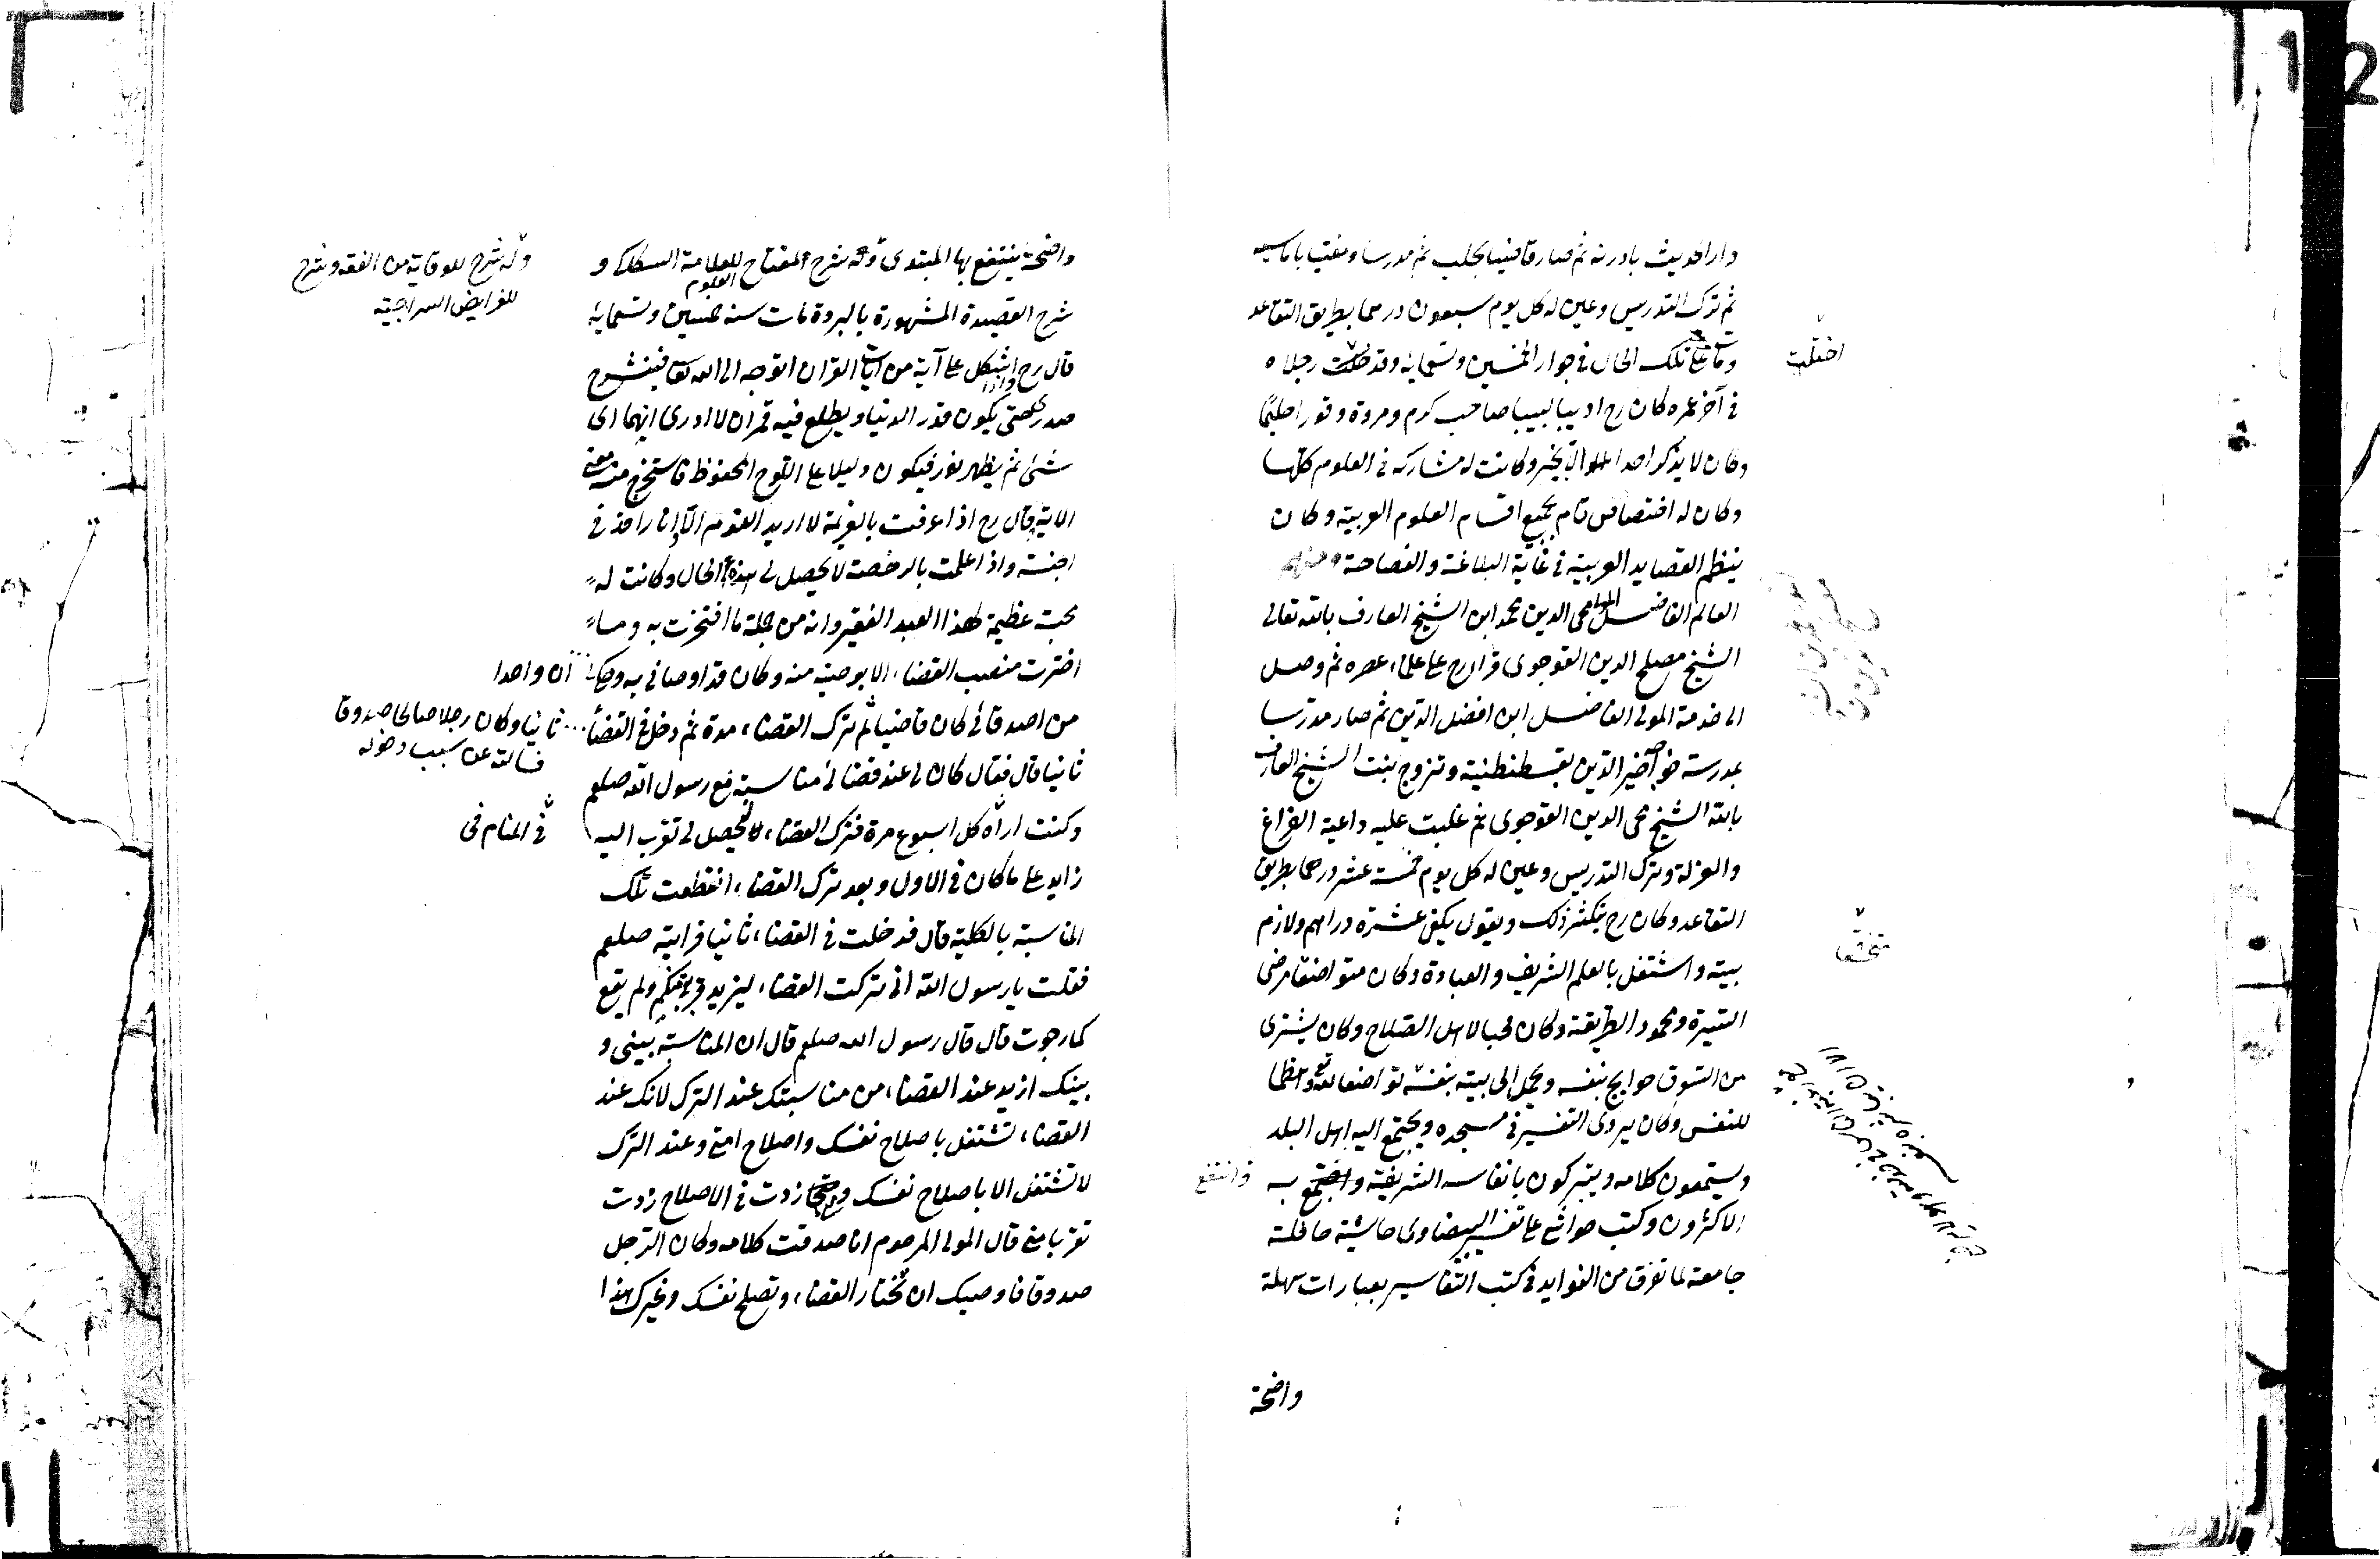 دار الحديث بادرنه ثم صار قاضيا بحلب ثم مدرسا ومفتيا باماسيه
ثم ترك التدريس وعين له كل يوم سبعون درهما بطريق التقاعد
ومات على تلك الحال في جوار الخمسين وتسعمايه وقد رجلاه
اختلت
في آخر عمره كان رح اديبا لبيبا صاحب كرم ومروة وقورا حليمًا
وكان لا يذكر احدا الا بخير وكانت له مشاركه في العلوم كلها
وكان له اختصاص تام بجميع اقسام العلوم العربيه وكان
ينظم القصايد العربية في غاية البلاغة والفصاحة ومنهم
العالم الفاضل المولى محى الدين محمد ابن الشيخ العارف بالله تعالى
الشيخ مصلح الدين القوجوى قرا رح على علماء عصره ثم وصل
الى خدمة المولى الفاضل ابن افضل الدين ثم صار مدرسا
بمدرسة خواجه خير الدين بقسطنطنية وتزوج بنت الشيخ العارف
بالله الشيخ محى الدين القوجوى ثم غلبت عليه داعية الفراغ
والعزلة وترك التدريس وعين له كل يوم خمسة عشر درهما بطريق
التقاعد وكان رح يتكثر ذلك ويقول يكفى عشرة دراهم ولازم
بيته واشتغل بالعلم الشريف والعبادة وكان متواضعا مرضى
متخشعا
السيرة ومحمود الطريقة وكان محبا لاهل الصلاح وكان يشترى
من السوق حوايجه بنفسه ويحمل الى بيته بنفسه تواضعا لله وهظما
للنفس وكان يروى التفسير في مسجده ويجتمع اليه اهل البلد
ويستمعون كلامه ويتبركون بانفاسه الشريفة واجتمع به
وانتفع
الاكثرون وكتب حواشى على تفسير البيضاوى حاشية حافلة
جامعة لما تفرق من الفوايد في كتب التفاسير بعبارات سهلة
واضحة
واضحة ينتفع بها المبتدى وله شرح المفتاح للعلامة السكاكى و
العلوم
وله شرح للوقاية من الفقه وشرح
للفرايض السراجية
شرح القصيدة المشهورة بالبردة مات سنه خمسين وتسعمايه
قال رح واذا اشكل على آية من آيات القران اتوجه الى الله تعا فينشرح
صدرى حتى يكون قدر الدنيا ويطلع فيه قمران لا ادرى انهما اى
شئ ثم يظهر نور فيكون دليلا على اللوح المحفوظ فاستخرج منه معنى
الاية قال رح اذا عملت بالعزيمة لا اريد النوم الا وانا راحة في
الجنة واذا عملت بالرخصة لا يحصل لى هذا الحال وكانت له
محبة عظيمة لهذا العبد الفقير وانه من جملة ما افتخرت به وما
اخترت منصب القضاء الا بوصية منه وكان قد اوصانى به وحكى ان واحدا
من اصدقائى كان قاضيا ثم ترك القضاء مدة ثم دخل في القضاء
ثانيا وكان رجلا صالحا صدوقا
فسالته عن سبب دخوله
ثانيا قال فقال كان لى عند قضائى مناسبة مع رسول الله صلعم
وكنت اراه كل اسبوع مرة فترك القضاء ليحصل لى تقرب اليه
في المنام في
زايد على ما كان في الاول وبعد ترك القضاء انقطعت تلك
المناسبة بالكلية قال فدخلت في القضاء ثانيا فرايته صلعم
فقلت يارسول الله انى تركت القضاء ليزيد قربتى بكم ولم يقع
كما رجوت قال قال رسول الله صلعم قال ان المناسبة بينى و
بينك ازيد عند القضاء من مناسبتك عند الترك لانك عند
القضاء تشتغل باصلاح نفسك واصلاح امتى وعند الترك
لا تشتغل الا باصلاح نفسك ومتى زدت في الاصلاح زدت
تقربا منى قال المولى المرحوم انا صدقت كلامه وكان الرجل
صدوقا فاوصيك ان تختار القضاء وتصلح نفسك وغيرك هذا
12